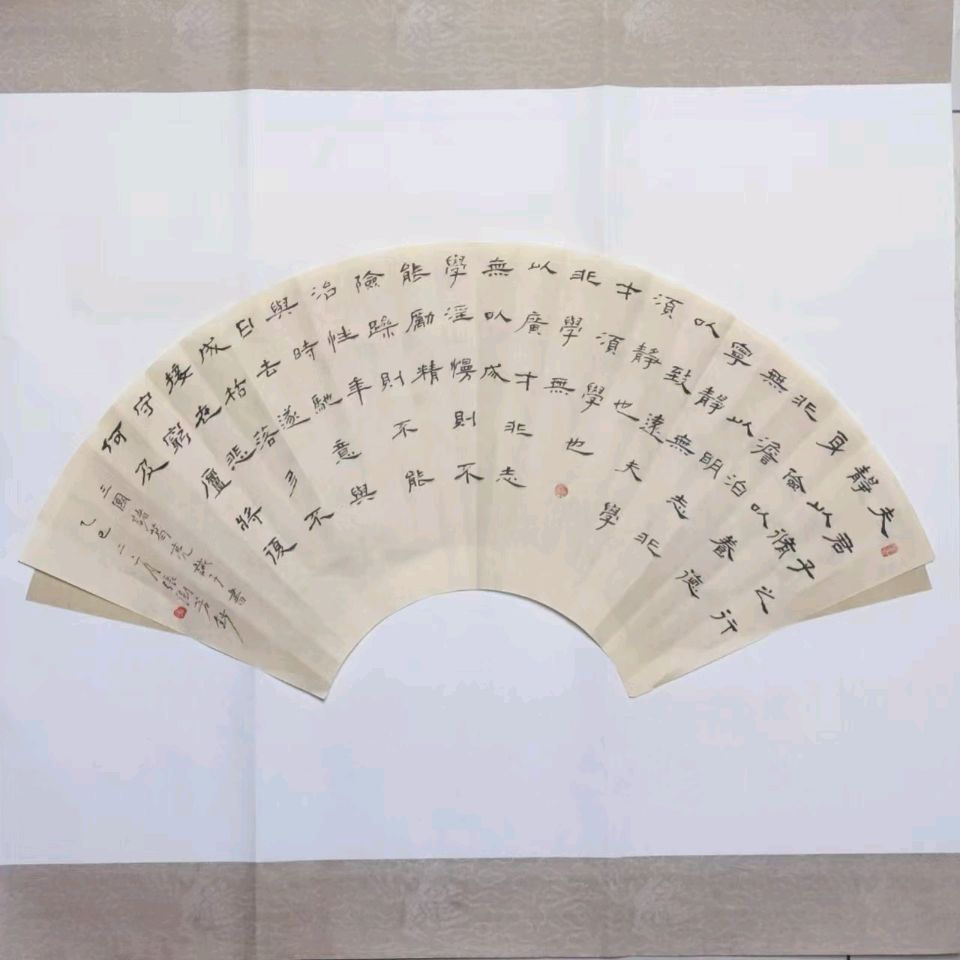 夫君子之行
靜以脩
身儉以養德
非澹泊
無以明志非
寧靜無
以致遠夫學
須靜也
才須學也
非學無
以廣才非志
無以成
學淫慢則不
能勵精
險躁則不能
治性年
與時馳意與
日去遂
成枯落多不
接世悲
守窮廬將復
何及
三國諸葛亮誡子書
乙巳